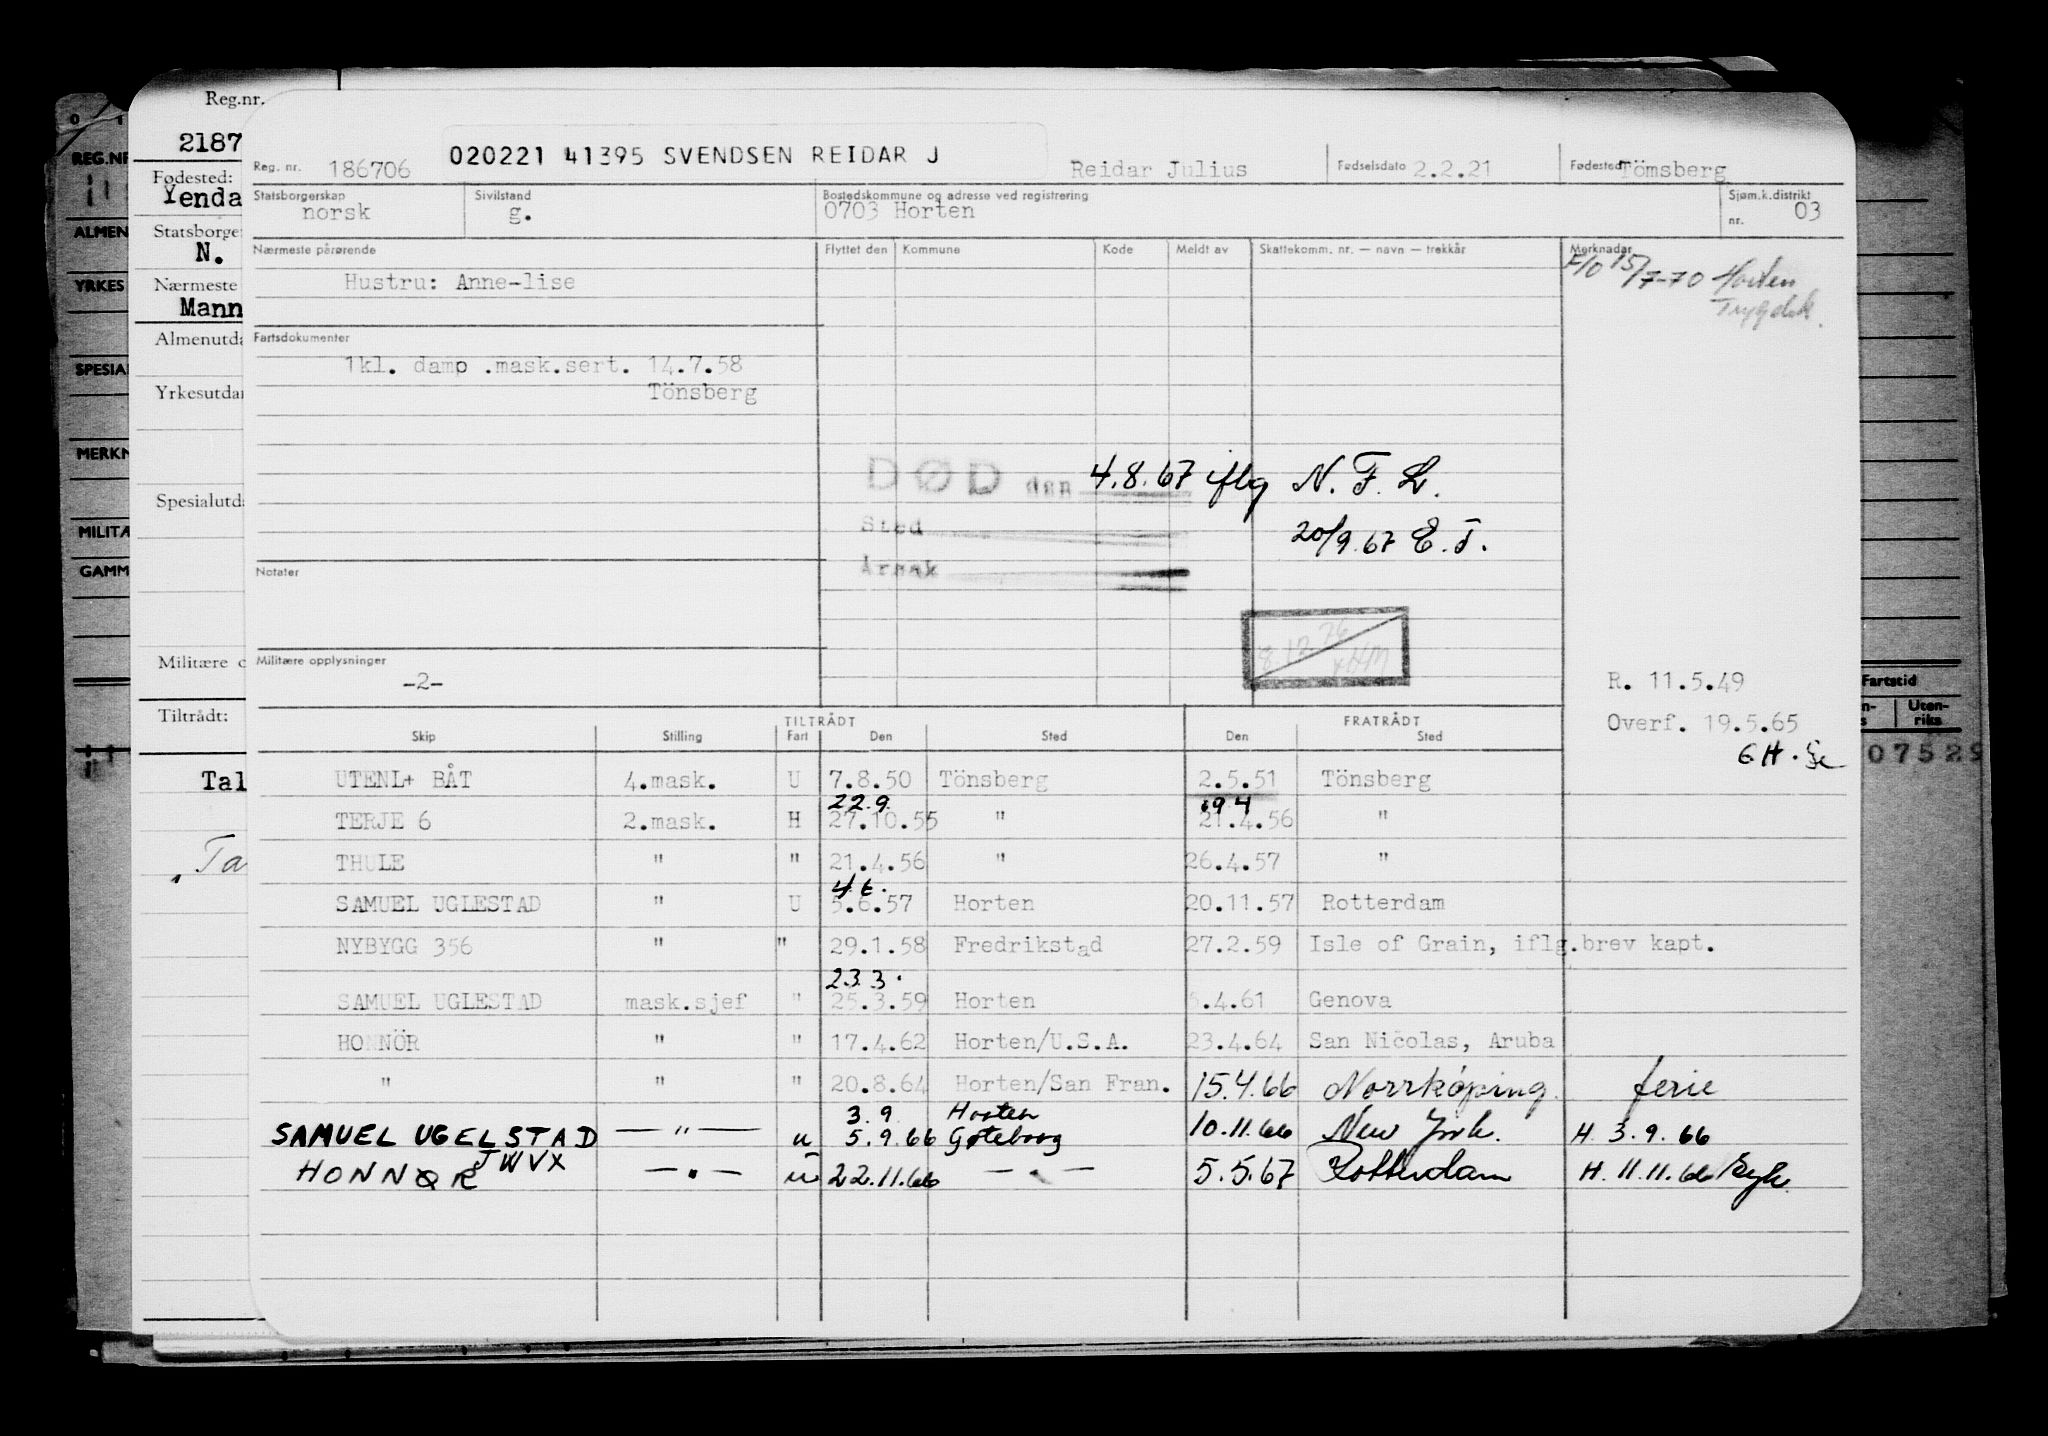 Reg.nr.
2187
Fødested:
Yenda
Statsborger
N.
Nærmeste
Mann
Almenutda
Yrkesutdan
Spesialutda
Militære o
Tiltrådt:
Tal
Ta
REG.NR
ALMEN
YRKES
SPESIAL
MERKN
MILITÆ
GAMM
Reg. nr. 186706 020221 41395 SVENDSEN REIDAR J Reidar Julius Fødselsdato 2.2.21 Fødested Tömsberg
Statsborgerskap Sivilstand Bostedskommune og adresse ved registrering Sjøm.k.distrikt
norsk g. 0703 Horten nr. 03
Nærmeste pårørende Flyttet den Kommune Kode Meldt av Skattekomm. nr. — navn — trekkår Merknader
F/O 15/7-70 Horten
Trygdek.
Hustru: Anne-lise
Fartsdokumenter
1kl. damp .mask.sert. 14.7.58
Tönsberg
DØD den 4.8.67 iflg N. F. L.
Sted 20/9.67 E. T.
Årsak
Notater
8 12 76
Militære opplysninger
-2-
R. 11.5.49
Overf. 19.5.65
Fartstid
Uten-
riks
07529
TILTRÅDT FRATRÅDT
Skip Stilling Fart Den Sted Den Sted
UTENL+ BÅT 4.mask. U 7.8.50 Tönsberg 2.5.51 Tönsberg
22.9. 19 4
TERJE 6 2.mask. H 27.10.55 " 21.4.56 "
THULE " " 21.4.56 " 26.4.57 "
4 6.
SAMUEL UGLESTAD " U 5.6.57 Horten 20.11.57 Rotterdam
NYBYGG 356 " " 29.1.58 Fredrikstad 27.2.59 Isle of Grain, iflg.brev kapt.
23.3.
SAMUEL UGLESTAD mask.sjef " 25.3.59 Horten 5.4.61 Genova
HONNÖR " " 17.4.62 Horten/U.S.A. 23.4.64 San Nicolas, Aruba
" " " 20.8.64 Horten/San Fran. 15.4.66 Norrköping. ferie
3.9. Horten
SAMUEL UGELSTAD —"— u 5.9.66 Gøteborg 10.11.66 New York. H. 3.9.66
JWVX
HONNØR —"— u 22.11.66 —"— 5.5.67 Rotterdam H. 11.11.66 syk.